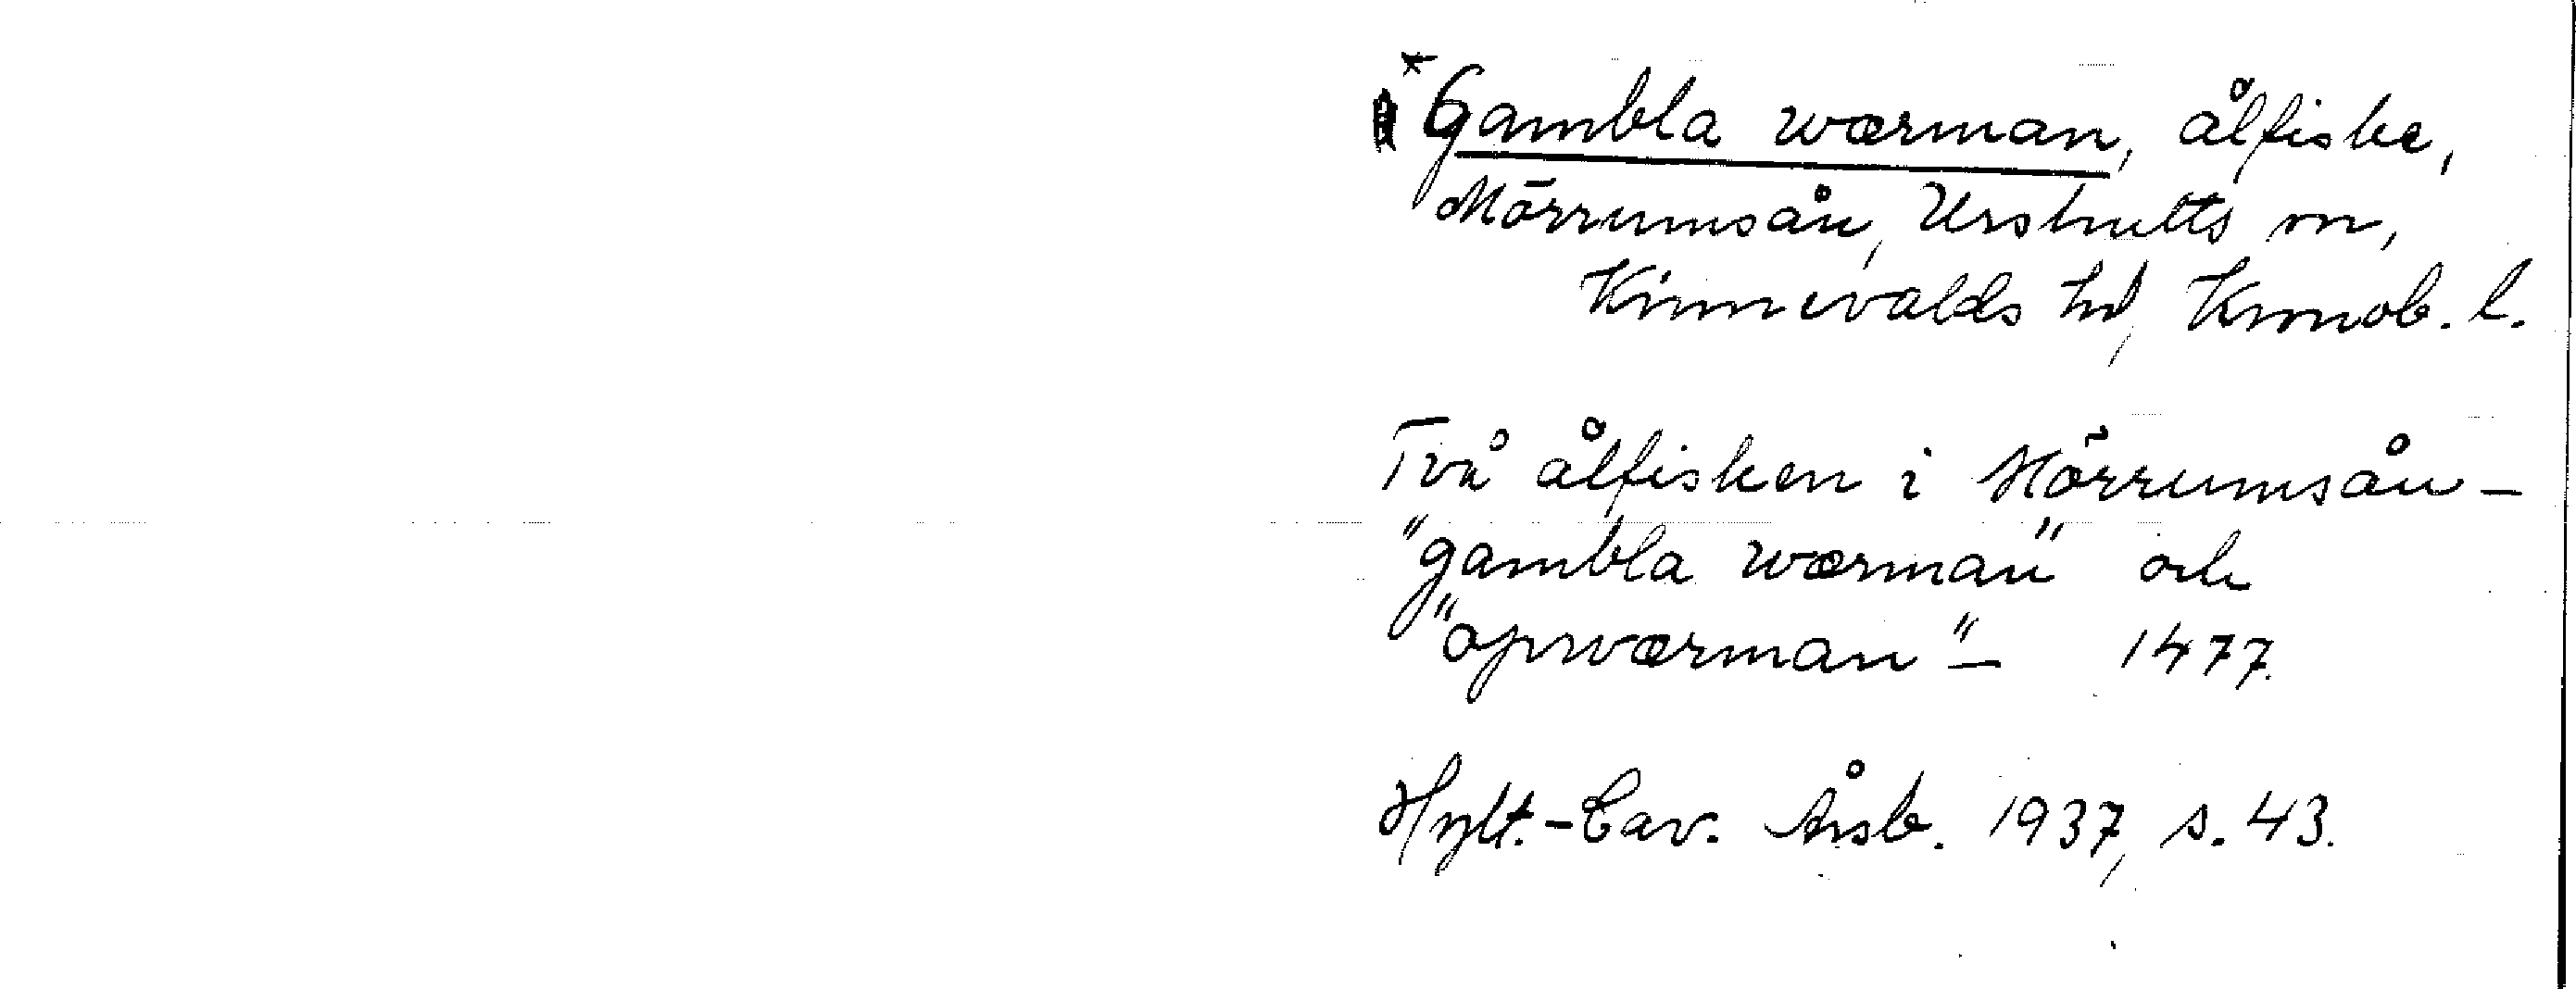 * Gambla wærman, ålfiske,
Mörrumsån, Urshults sn,
Kinnevalds hd, Kronob. l.
Två ålfisken i Mörrumsån –
"gambla wærman" och
"opwærman" – 1477.
Hylt.-Cav. Årsb. 1937, s. 43.